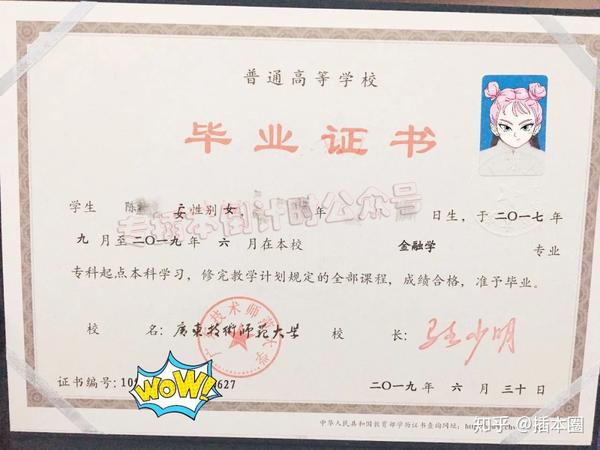 普通高等学校
毕业证书
学生 陈 性别 女, 年 日生，于二〇一七年
九月至二〇一九年 六月在本校 金融学 专业
专科起点本科学习，修完教学计划规定的全部课程，成绩合格，准予毕业。
校 名：廣東技術師范大学 校 长：
证书编号：10 627 二〇一九年 六月三十日
WOW!
中华人民共和国教育部学历证书查询网址：http
专插本倒计时公众号
知乎 @插本圈